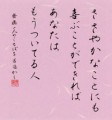 ささやかなことにも
喜ぶことができれば
あなたは
もうついてる人